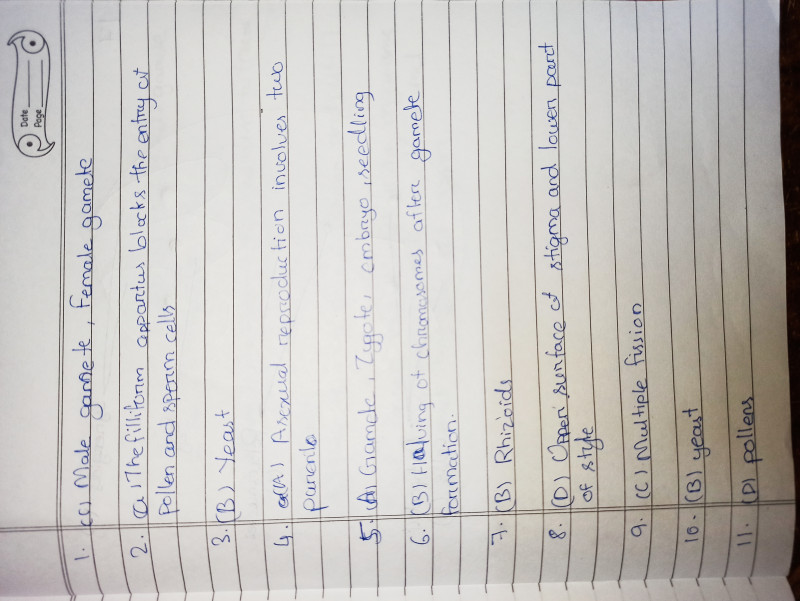 Date
Page
1. (C) Male gamete, Female gamete
2. (a) The filliform appartus blocks the entry of
Pollen and sperm cells
3. (B) Yeast
4. (A) Asexual reproduction involves two
parents
5. (A) Gramete, Zygote, embrayo, seedling
6. (B) Halving of chromosomes after gamete
formation.
7. (B) Rhizoids
8. (D) Upper surface of stigma and lower part
of style
9. (C) Multiple fission
10. (B) yeast
11. (D) pollens